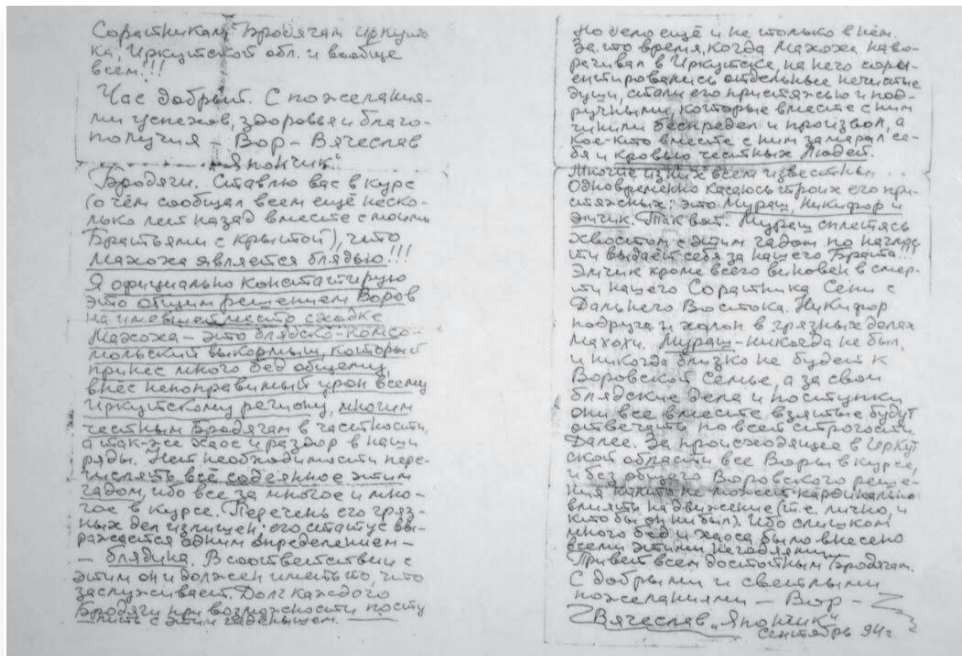 Соратникам, Бродягам Иркутс
ка, Иркутской обл. и вообще
всем!!!
Час добрый. С пожелания-
ми успехов, здоровья и благо-
получия – Вор – Вячеслав
"Япончик"
Бродяги. Ставлю вас в курс
(о чём сообщал всем ещё неско-
лько лет назад вместе с моими
Братьями с крытой), что
Махоха является блядью!!!
Я официально констатирую
это общим решением Воров
на имевшей место сходке
Махоха – это блядско-комсо-
мольский выкормыш, который
принёс много бед общему,
внёс непоправимый урон всему
Иркутскому региону, многим
честным Бродягам в частности,
а так-же хаос и раздор в наши
ряды. Нет необходимости пере-
числять всё содеянное этим
гадом, ибо все за многое и мно-
гое в курсе. Перечень его гряз-
ных дел излишен; его статус вы-
ражается одним определением –
– блядина. В соответствии с
этим он и должен иметь то, что
заслуживает. Долг каждого
Бродяги при возможности посту
пить с этим гадёнышем.
Но дело ещё и не только в нём.
За то время, когда Махоха наво-
рачивал в Иркутске, на него сори-
ентировались отдельные нечистые
души, стали его пристяжью и под-
ручными, которые вместе с ним
чинили беспредел и произвол, а
кое-кто вместе с ним замарал се-
бя и кровью честных Людей.
Многие из них всем известны...
Одновременно касаюсь троих его при-
стяжных: это Мураш, Никифор и
Эмчик. Так вот. Мураш сплетясь
хвостом с этим гадом по нагляс
ти выдаёт себя за нашего Брата...
Эмчик кроме всего виновен в смер-
ти нашего Соратника Сени с
Дальнего Востока. Никифор
подруга и холоп в грязных делах
Махохи. Мураш – никогда не был,
и никогда близко не будет к
Воровской Семье, а за свои
блядские дела и поступки
они все вместе взятые будут
отвечать по всей строгости.
Далее. За происходящее в Иркут
ской области все Воры в курсе,
и без общего Воровского реше-
ния никто не может кардинально
влиять на движение (т.е. лично, и
кто бы он ни был). Ибо слишком
много бед и хаоса было внесено
всеми этими негодяями.
Привет всем достойным Бродягам.
С добрыми и светлыми
пожеланиями – Вор –
Вячеслав "Япончик"
Сентябрь 94г.